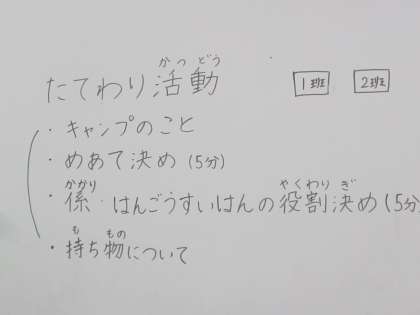 たてわり活動 1班 2班
かつどう
・キャンプのこと
・めあて決め (5分)
・係・はんごうすいはんの役割決め(5分
かかり やくわり ぎ
・持ち物について
も もの